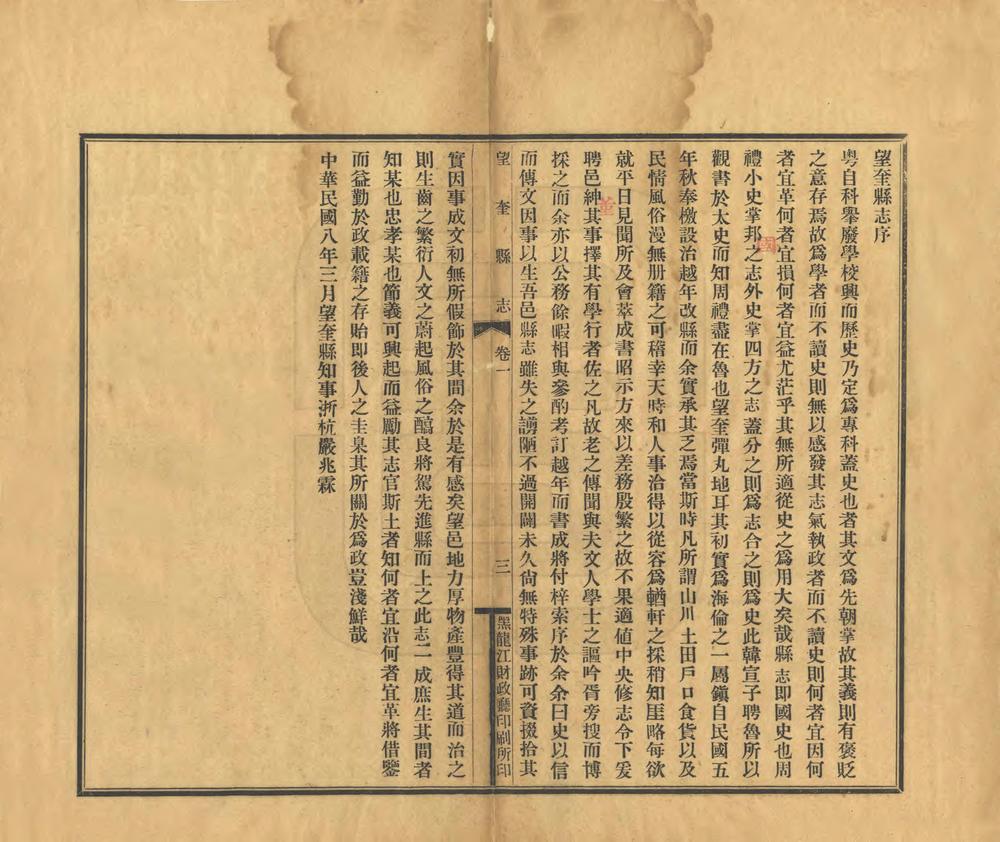 望奎縣志序
粵自科舉廢學校興而歷史乃定爲專科蓋史也者其文爲先朝掌故其義則有褒貶
之意存焉故爲學者而不讀史則無以感發其志氣執政者而不讀史則何者宜因何
者宜革何者宜損何者宜益尤茫乎其無所適從史之爲用大矣哉縣志即國史也周
禮小史掌邦之志外史掌四方之志蓋分之則爲志合之則爲史此韓宣子聘魯所以
觀書於太史而知周禮盡在魯也望奎彈丸地耳其初實爲海倫之一屬鎭自民國五
年秋奉檄設治越年改縣而余實承其乏焉當斯時凡所謂山川土田戶口食貨以及
民情風俗漫無册籍之可稽幸天時和人事洽得以從容爲輶軒之採稍知厓略每欲
就平日見聞所及會萃成書昭示方來以差務殷繁之故不果適値中央修志令下爰
聘邑紳其事擇其有學行者佐之凡故老之傳聞與夫文人學士之謳吟胥旁搜而博
採之而余亦以公務餘暇相與參酌考訂越年而書成將付梓索序於余余曰史以信
而傳文因事以生吾邑縣志雖失之謭陋不過開闢未久尙無特殊事跡可資掇拾其
望奎縣志 卷一 三 黑龍江財政廳印刷所印
實因事成文初無所假飾於其間余於是有感矣望邑地力厚物產豐得其道而治之
則生齒之繁衍人文之蔚起風俗之醕良將駕先進縣而上之此志一成庶生其間者
知某也忠孝某也節義可興起而益勵其志官斯土者知何者宜沿何者宜革將借鑒
而益勤於政載籍之存貽即後人之圭臬其所關於爲政豈淺鮮哉
中華民國八年三月望奎縣知事浙杭嚴兆霖
董
國